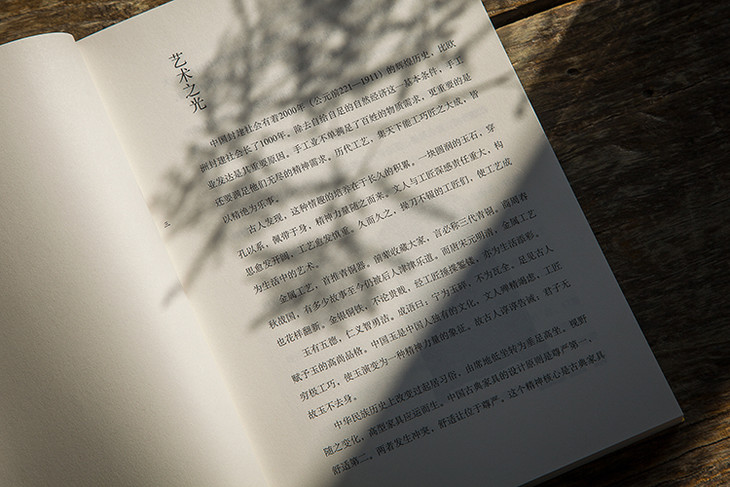 艺术之光
中国封建社会有着2000年（公元前221—1911）的辉煌历史，比欧
洲封建社会长了1000年。除去自给自足的自然经济这一基本条件，手工
业发达是其重要原因。手工业不单满足了百姓的物质需求，更重要的是
还要满足他们无尽的精神需求。历代工艺，集天下能工巧匠之大成，皆
以精绝为乐事。
古人发现，这种情趣的培养在于长久的积累。一块圆润的玉石，穿
孔以系，佩带于身，精神力量随之而来。文人与工匠深感责任重大，构
思愈发开阔，工艺愈发慎重。久而久之，操刀不辍的工匠们，使工艺成
为生活中的艺术。
金属工艺，首推青铜器。前辈收藏大家，言必称三代青铜。商周春
秋战国，有多少故事至今仍被后人津津乐道。而唐宋元明清，金属工艺
也花样翻新，金银铜铁，不论贵贱，经工匠捶揲錾镂，亦为生活添彩。
玉有五德，仁义智勇洁。成语曰：宁为玉碎，不为瓦全。足见古人
赋予玉的高尚品格。中国玉是中国人独有的文化，文人殚精竭虑，工匠
穷极工巧，使玉演变为一种精神力量的象征。故古人谆谆告诫：君子无
故玉不去身。
中华民族历史上改变过起居习俗，由席地低坐转为垂足高坐，视野
随之变化，高型家具应运而生。中国古典家具的设计原则是尊严第一，
舒适第二。两者发生冲突，舒适让位于尊严。这个精神核心是古典家具
五